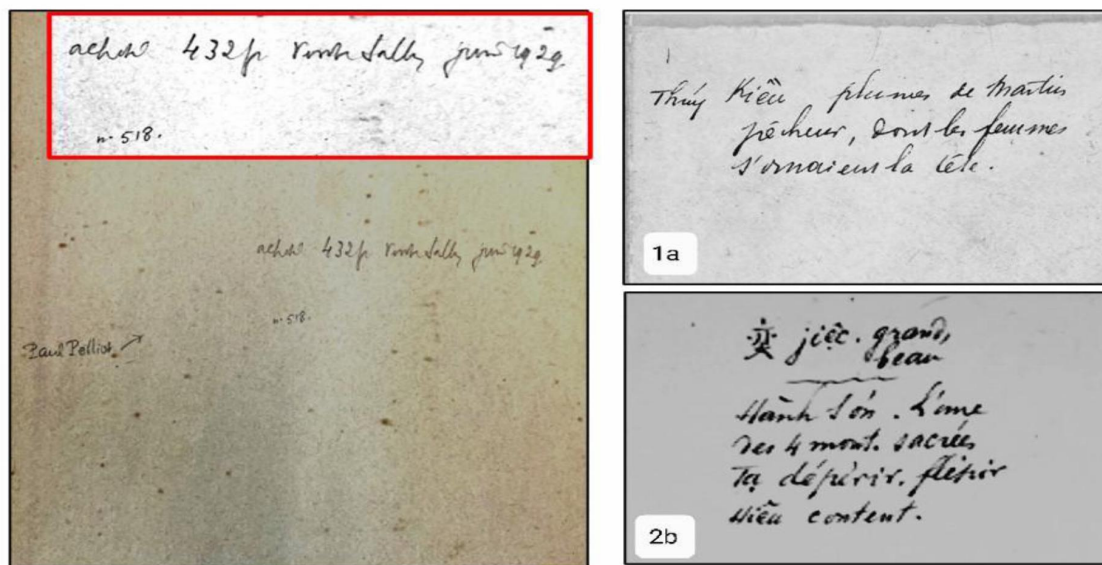 acheté 432 fr vente Sally juin 1929
n° 518.
acheté 432 fr vente Sally juin 1929
n° 518.
Paul Pelliot
Thúy Kiều plumes de Martin
pêcheur, dont les femmes
s'ornaient la tête.
1a
奕 jiệc. grand,
beau
Hành Sơn. L'une
des 4 mont. sacrées
Tạ dépérir. flétrir
Hiêu content.
2b